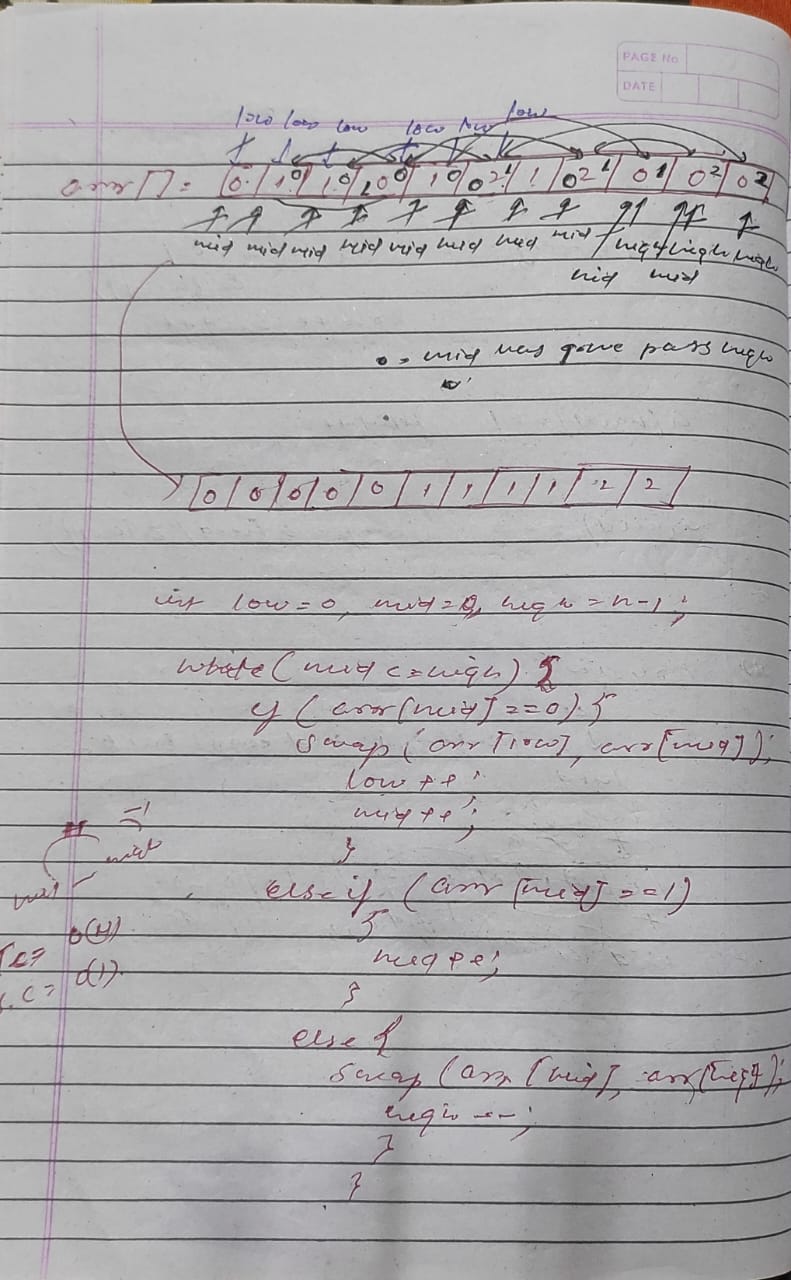 PAGE No
DATE
low low low low low low
arr[] =
mid mid mid mid mid mid mid mid high high high
mid mid
mid has gone pass high
0 0 0 0 0 1 1 1 1 2 2
int low = 0, mid = 0, high = n-1;
while (mid <= high) {
if (arr[mid] == 0) {
swap (arr[low], arr[mid]);
low++;
mid++;
}
else if (arr[mid] == 1)
{
mid++;
}
else {
swap (arr[mid], arr[high]);
high--;
}
}
O(N)
O(1)